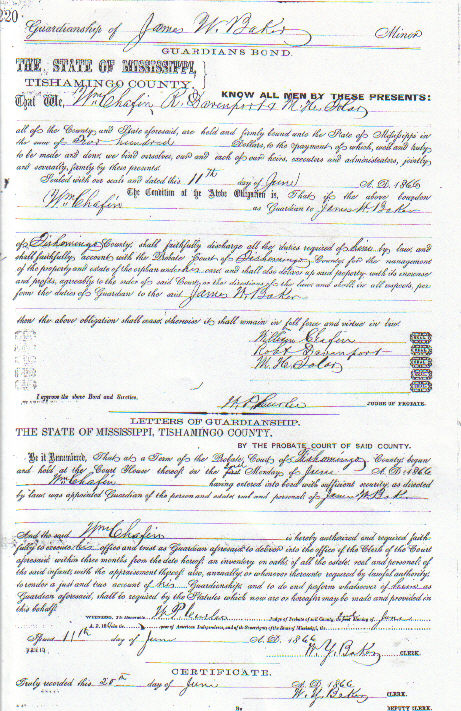 220
Guardianship of James W. Baker Minor
GUARDIANS BOND.
THE STATE OF MISSISSIPPI,
TISHAMINGO COUNTY.
KNOW ALL MEN BY THESE PRESENTS:
That We, Wm Chafin R. Davenport & M. H. Tolar
all of the County and State aforesaid, are held and firmly bound unto the State of Mississippi in
the sum of hundred Dollars, to the payment of which, well and truly,
to be made and done, we bind ourselves, our and each of our heirs, executors and administrators, jointly
and severally, firmly by these presents.
Sealed with our seals and dated this 11th day of June A. D. 1866
The Condition of the Above Obligation is, That if the above bounden
Wm Chafin as Guardian to James W. Baker
of Tishomingo County shall faithfully discharge all the duties required of by law, and
shall faithfully account with the Probate Court of Tishomingo County for the management
of the property and estate of the orphan under his care, and shall also deliver up said property with its increase
and profits, agreeably to the order of said Court, or the directions of the law, and shall in all respects, per-
form the duties of Guardian to the said James W. Baker
then the above obligation shall cease, otherwise it shall remain in full force and virtue in law.
William Chafin
Robt Davenport
M. H. Tolar
I approve the above Bond and Sureties.
JUDGE OF PROBATE.
LETTERS OF GUARDIANSHIP.
THE STATE OF MISSISSIPPI, TISHAMINGO COUNTY.
BY THE PROBATE COURT OF SAID COUNTY.
Be it Remembered, That at a Term of the Probate Court of Tishomingo County, began
and held at the Court House thereof on the Monday of June A. D. 1866
Wm Chafin having entered into bond with sufficient security, as directed
by law, was appointed Guardian of the person and estate, real and personal, of James W. Baker
And the said Wm Chafin is hereby authorized and required faith-
fully to execute his office and trust as Guardian aforesaid, to deliver into the office of the Clerk of the Court
aforesaid, within three months from the date hereof, an inventory on oath, of all the estate, real and personal of
the said infant, with the appraisement thereof; also, annually, or whenever thereunto required by lawful authority,
to render a just and true account of his Guardianship, and to do and perform whatsoever of as
Guardian aforesaid, shall be required by the Statutes which now are or hereafter may be made and provided in
this behalf.
WITNESS, The Honorable Judge of Probate of said County, Monday of June
year of American Independence, and of the Sovereignty of the State of Mississippi,
Issued 11th day of June A. D. 1866
W. Y. Baker CLERK.
CERTIFICATE.
Truly recorded this 25th day of June A. D. 1866
W. Y. Baker CLERK.
By DEPUTY CLERK.